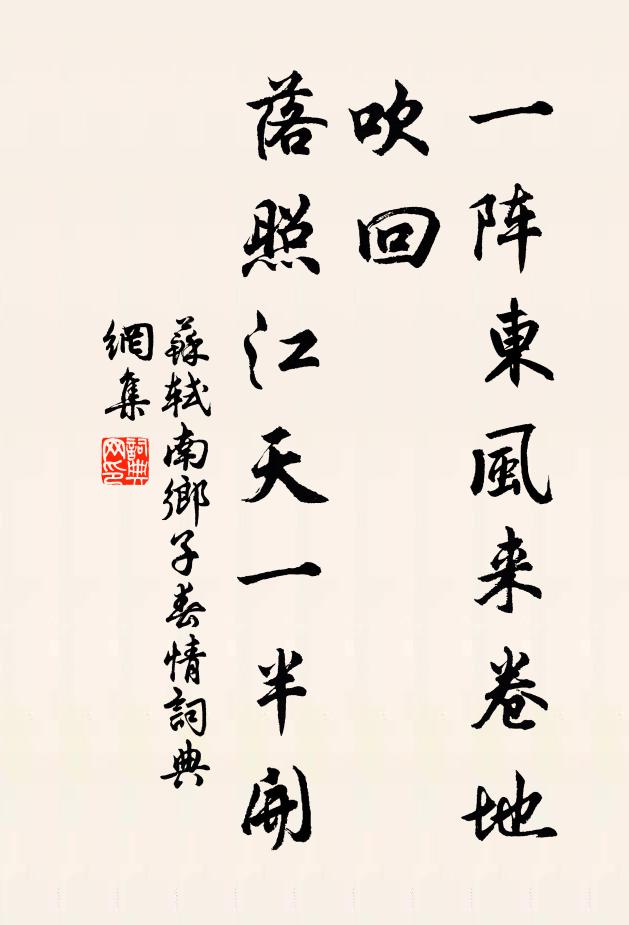 一阵東風来卷地
吹回
落照江天一半開
蘇軾南鄉子春情詞典
網集
詞典网印